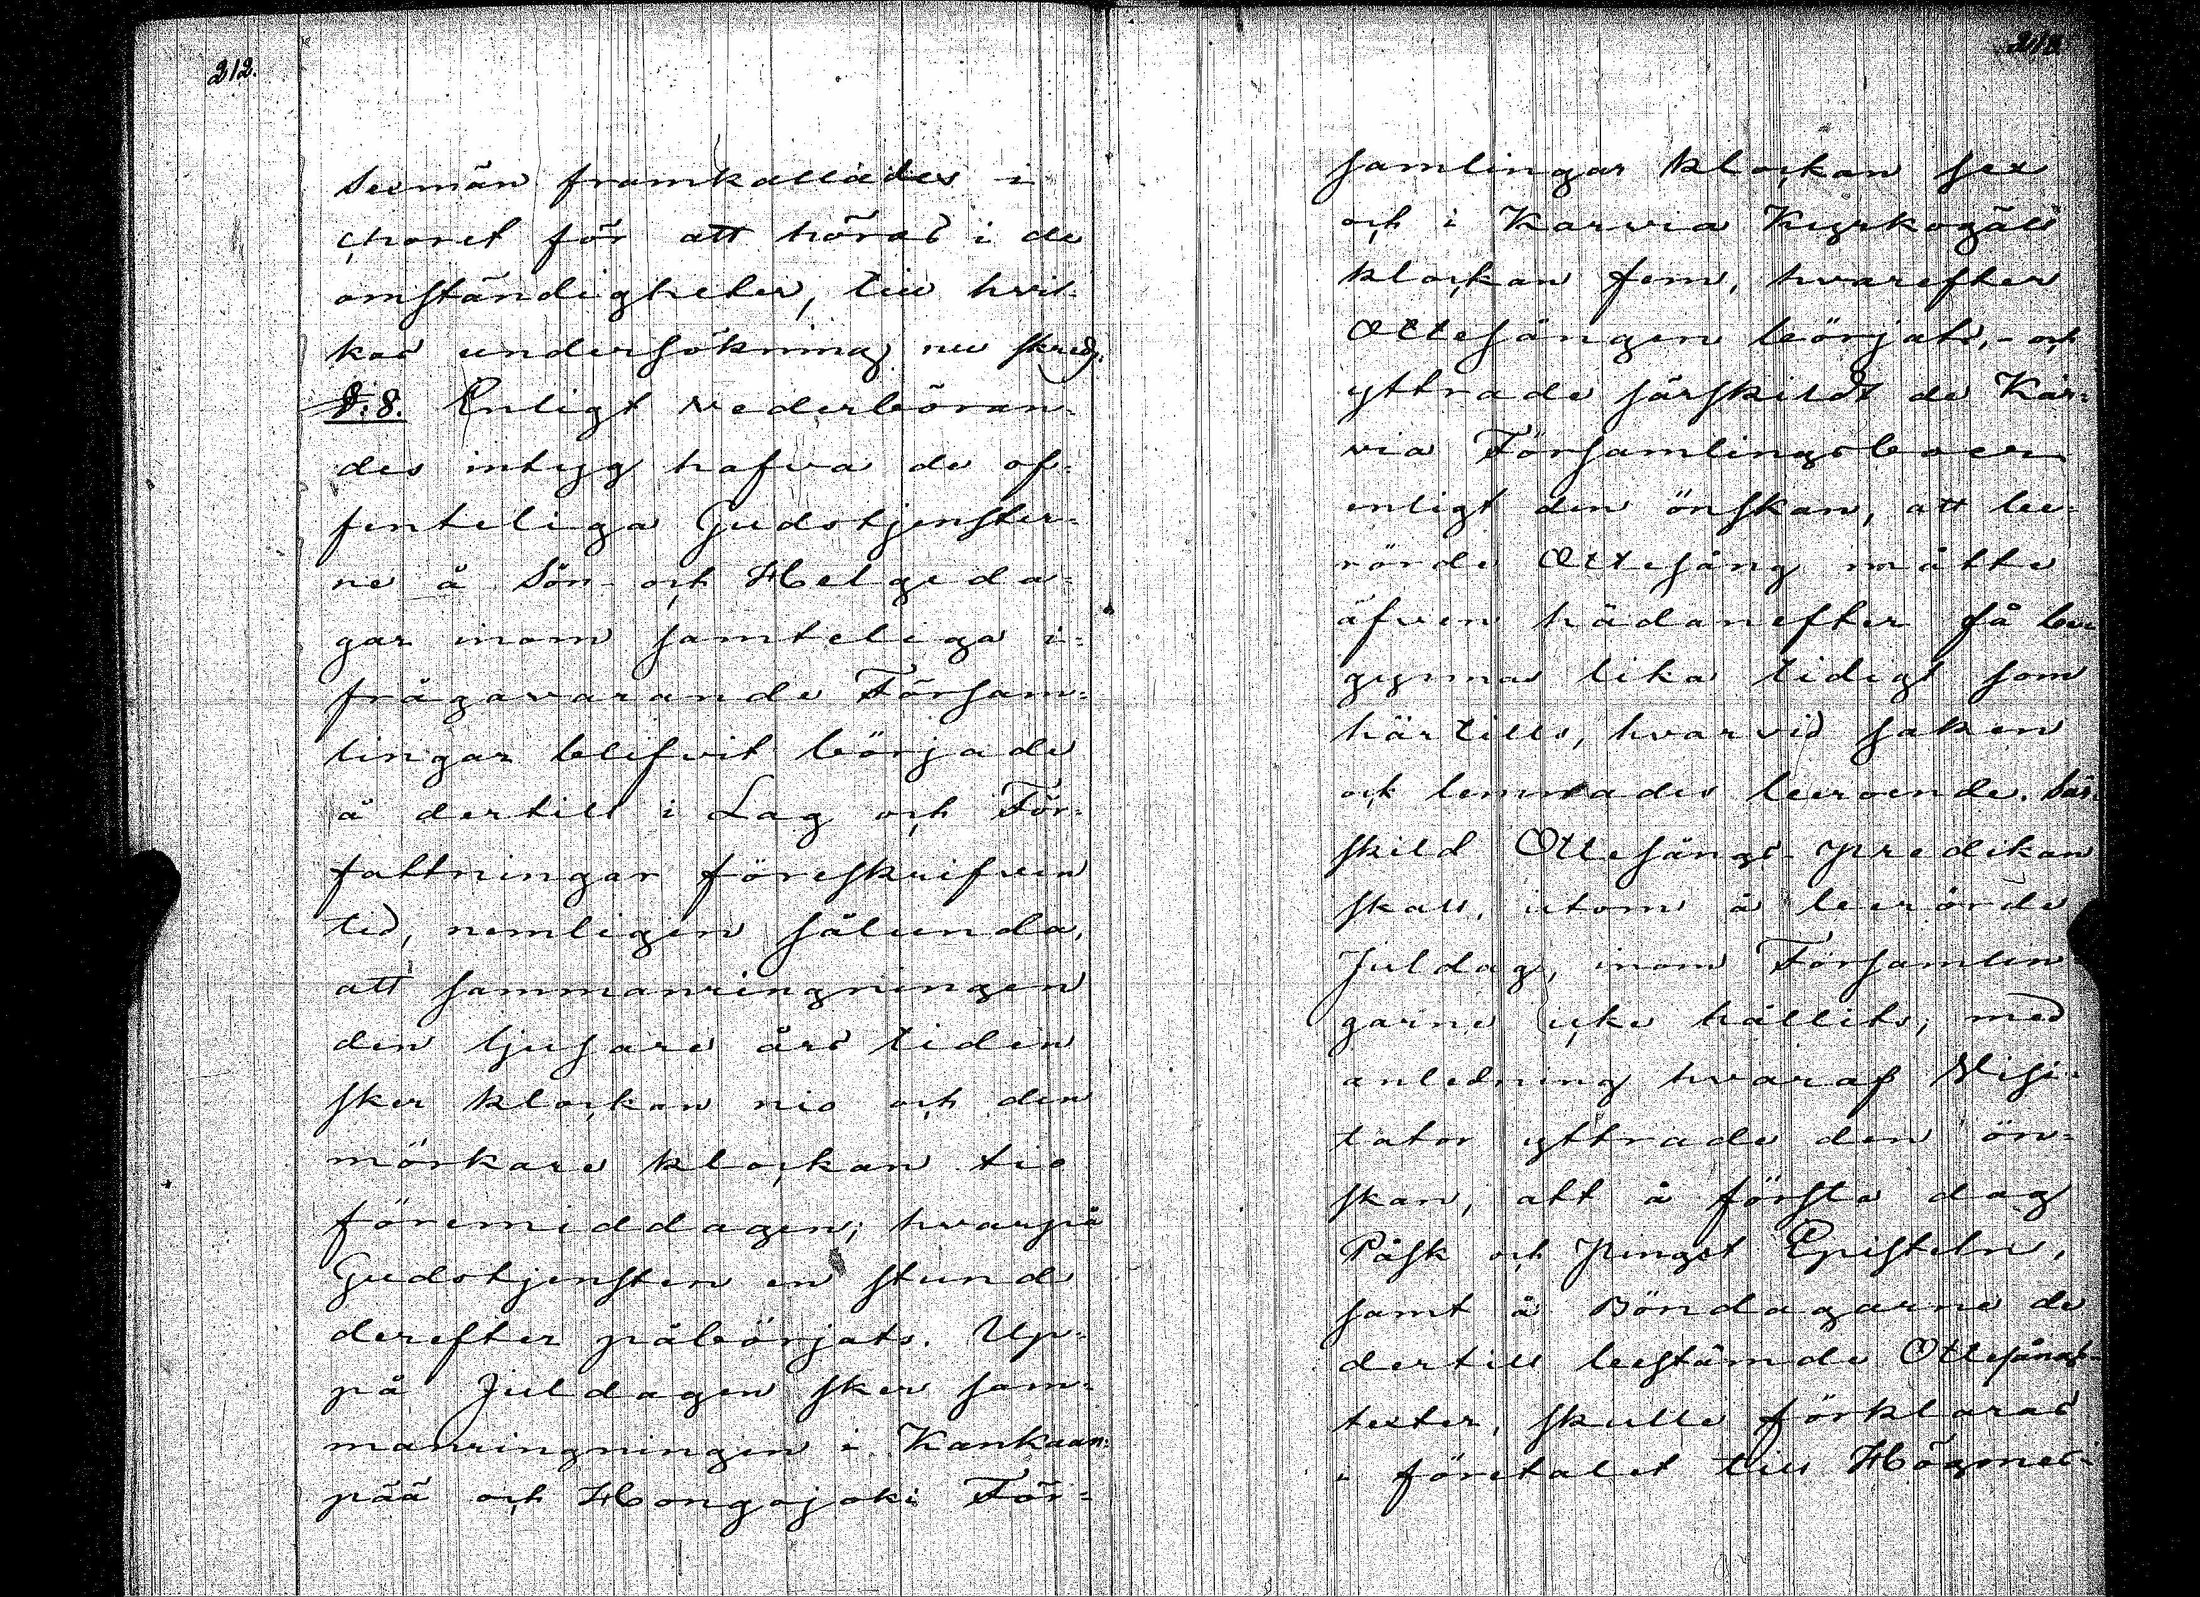 212.
Sexmän framkallades i
choret för att höras i de
omständigheter, till hvil-
kas undersökning nu skreds.
§. 8. Enligt vederböran-
des intyg hafva de of-
fenteliga Gudstjenster-
ne å Sön- och Helgeda-
gar inom samteliga i-
frågavarande Försam-
lingar blifvit började
å dertill i Lag och För-
fattningar föreskrifven
tid, nemligen sålunda,
att sammanringningen
den ljusare års tiden
sker klockan nio och den
mörkare klockan tio
föremiddagen; hvarpå
Gudstjensten en stund
derefter påbörjats. Up-
på Juldagen sker sam-
manringningen i Kankaan-
pää och Hongojoki För-
213
samlingar klockan sex
och i Karvia Kyrkogäll
klockan fem, hvarefter
Ottesången börjats, - och
yttrade särskildt de Kar-
via Församlingsboer
enligt den önskan, att be-
rörde Ottesång måtte
äfven hädanefter få be-
gynnas lika tidigt som
härtills, hvarvid saken
ock lemnades beroende. Sär-
skild Ottesångs-predikan
skall, utom å berörde
Juldag, inom Församlin
garne icke hållits; med
anledning hvaraf Visi-
tator yttrade den ön-
skan, att å första dag
Påsk och Pingst Episteln,
samt å Böndagarne de
dertill bestämde Ottesångs-
texter, skulle förklaras
i företalet till Högmes-